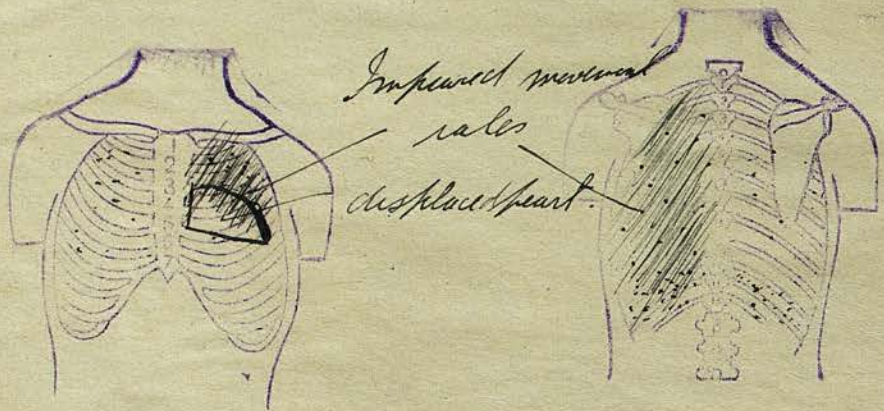 Impaired movement
rales
displaced heart.